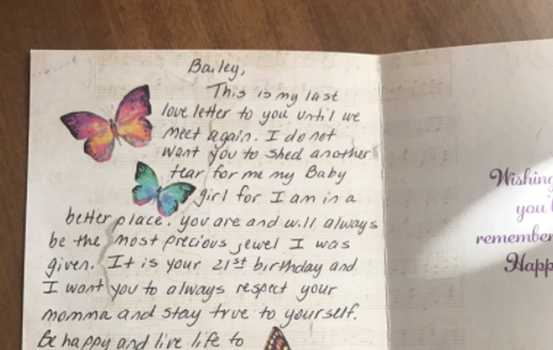 Bailey,
This is my last
love letter to you until we
meet again. I do not
want you to shed another
tear for me my Baby
girl for I am in a
better place. you are and will always
be the most precious jewel I was
given. It is your 21st birthday and
I want you to always respect your
momma and stay true to yourself.
Be happy and live life to
Wishing
you'
remember
Happ